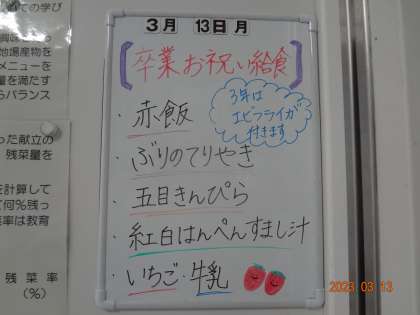 めての学び
地場産物を
メニューを
量を満たす
らバランス
った献立の
残菜量を
を計算して
て何%残っ
率は教育
残菜率
(%)
3月 13日 月
[卒業お祝い給食]
3年は
エビフライが
付きます
・赤飯
・ぶりのてりやき
・五目きんぴら
・紅白はんぺんすまし汁
・いちご・牛乳
2023 03 13